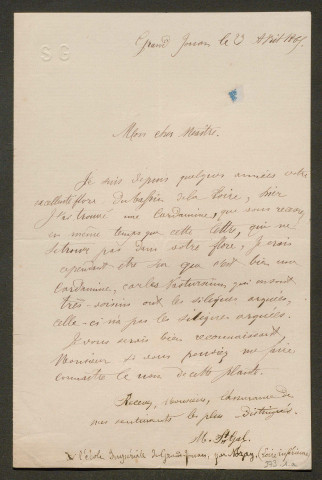 SG
Grand Jouan le 23 Avril 1865.
Mon cher Maître.
Je suis depuis quelques années votre
excellente flore du bassin de la Loire, hier
j'ai trouvé une Cardamine, que vous recevez
en même temps que cette lettre, qui ne
se trouve pas dans votre flore, je crois
cependant être sûr que c'est bien une
Cardamine, car les
très-voisins ont les siliques arquées,
celle-ci n'a pas les siliques arquées.
Je vous serais bien reconnaissant,
Monsieur si vous pensiez me faire
connaître le nom de cette plante.
Recevez, monsieur, l'assurance de
mes sentiments les plus distingués.
M.
à l'école Impériale de Grand-Jouan, par Nozay (Loire inférieure)